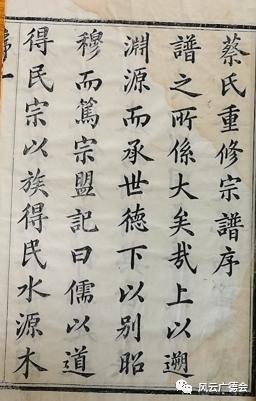 蔡氏重修宗譜序
譜之所係大矣哉上以遡
淵源而承世德下以別昭
穆而篤宗盟記曰儒以道
得民宗以族得民水源木
风云广德会